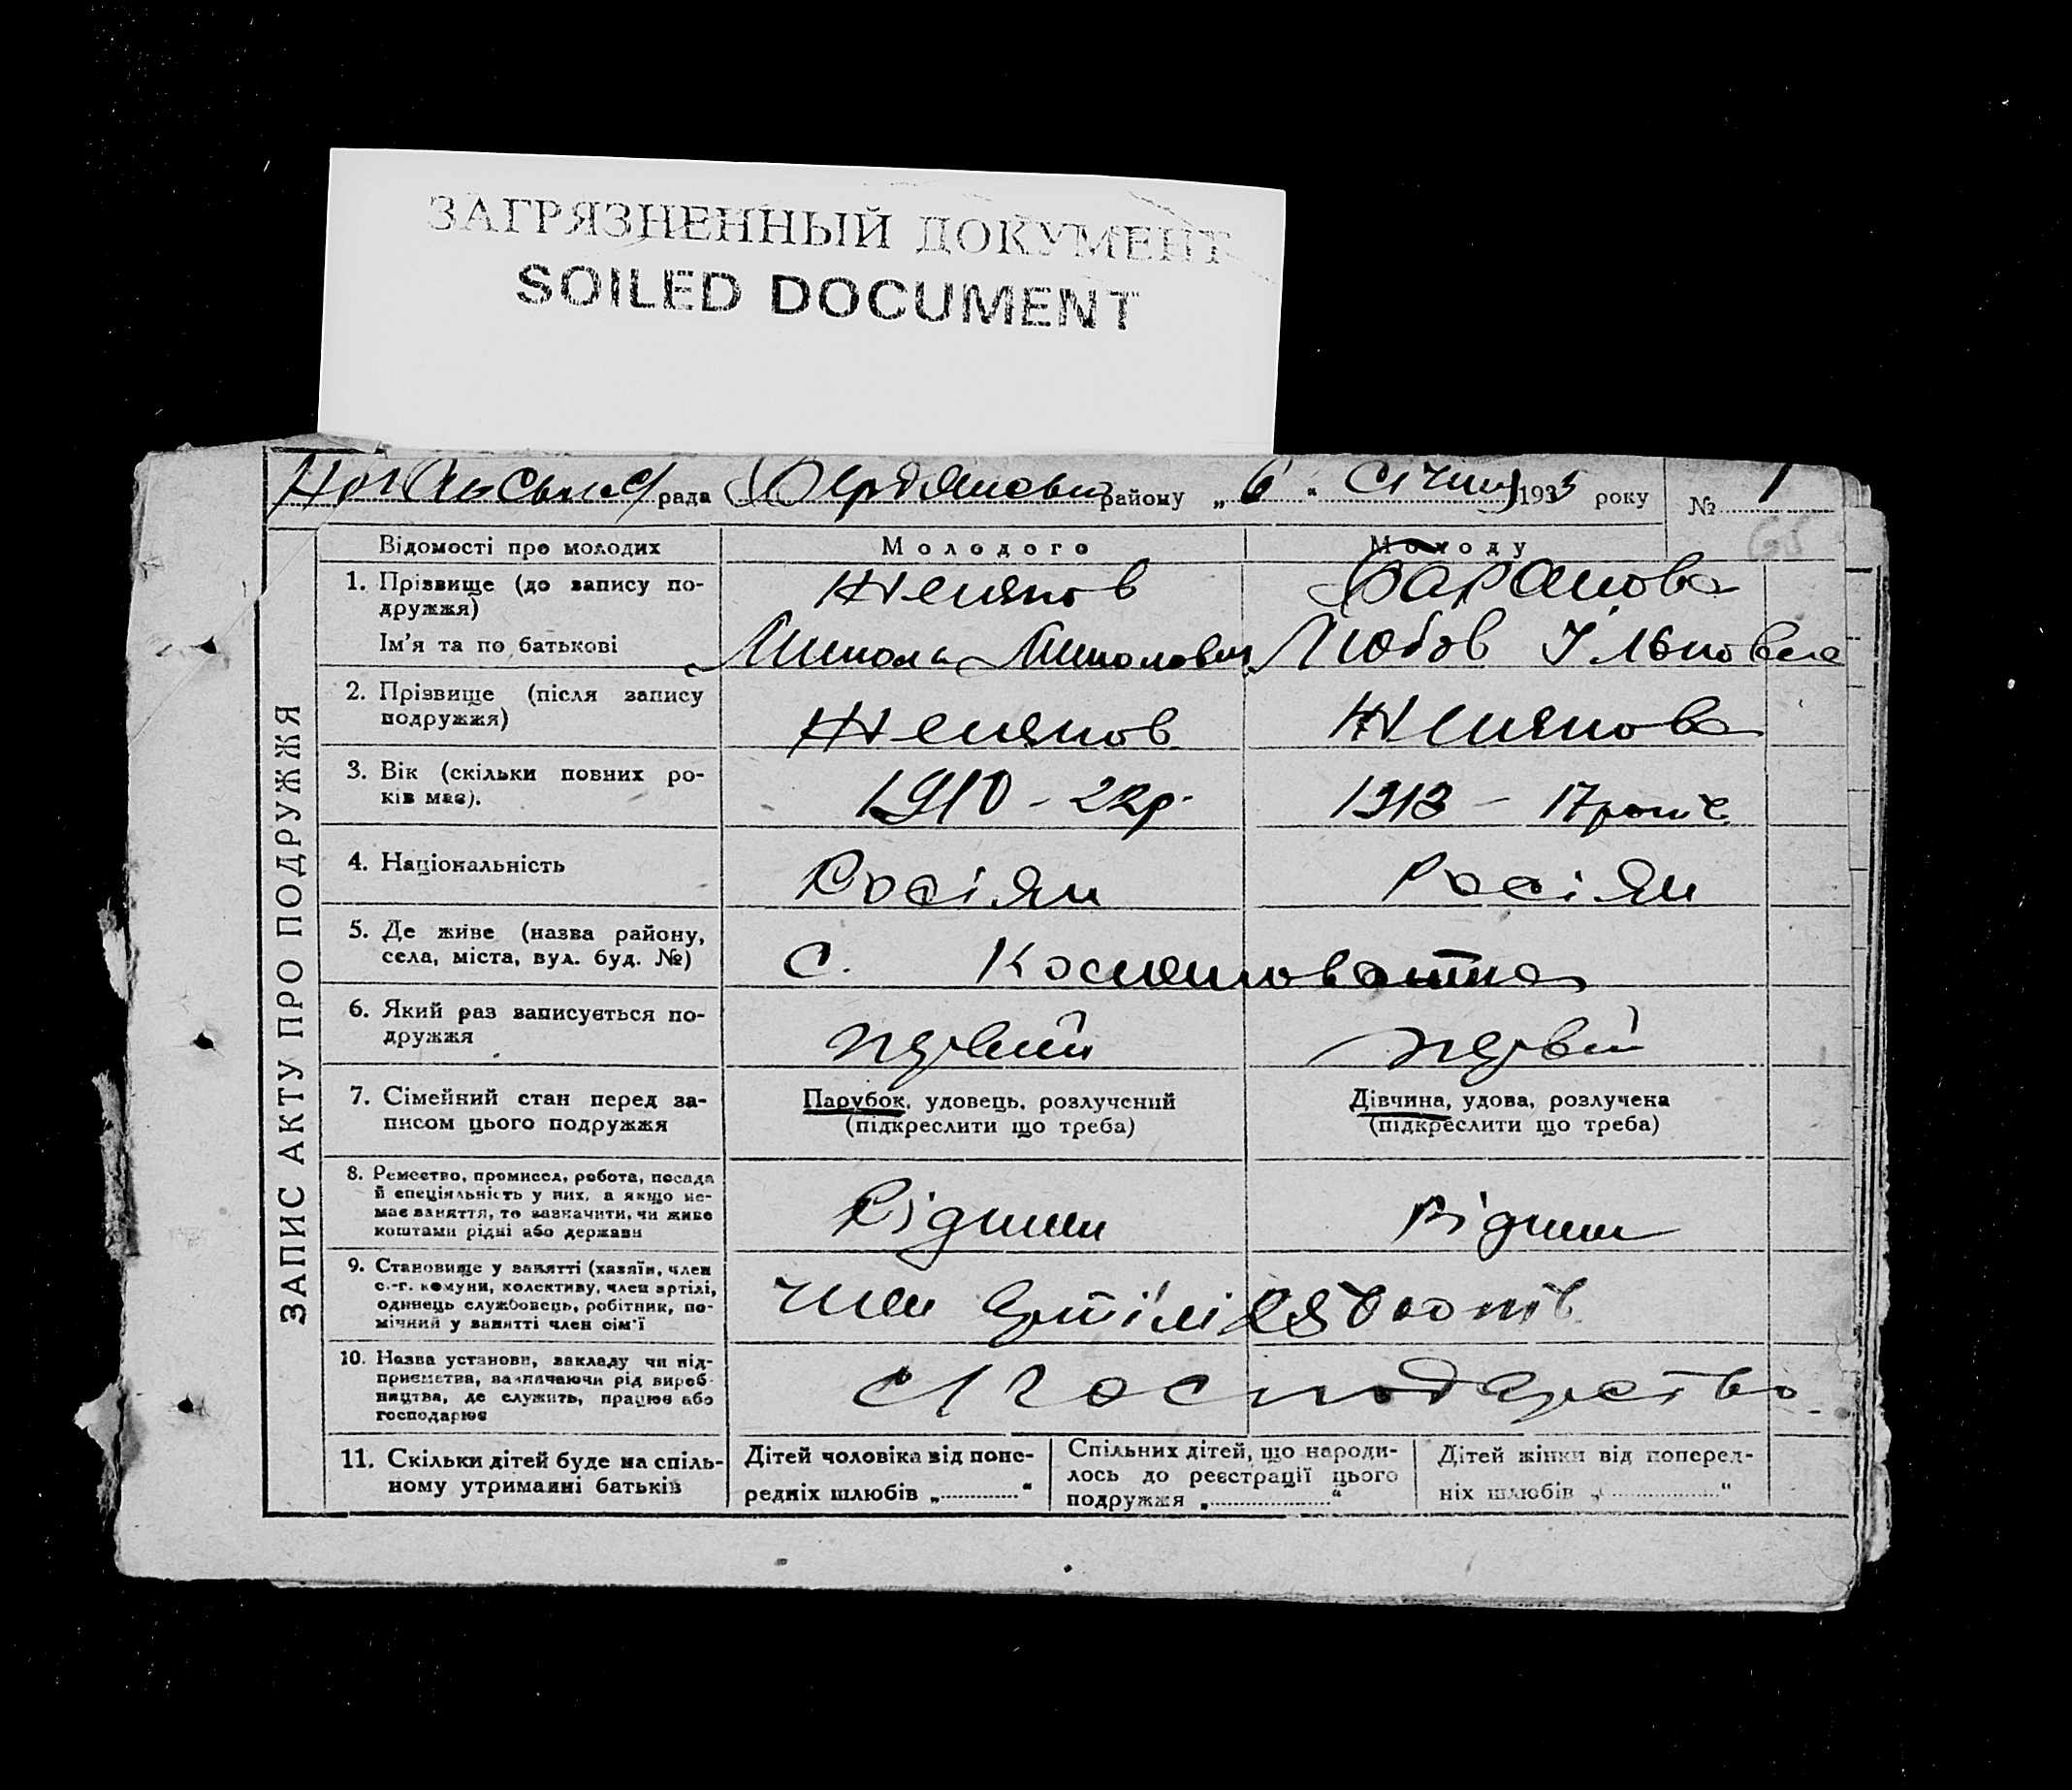 ЗАГРЯЗНЕННЫЙ ДОКУМЕНТ
SOILED DOCUMENT
рада Бердянськ району „ 6 “ Січня 1933 року № 1
65
ЗАПИС АКТУ ПРО ПОДРУЖЖЯ
Відомості про молодих Молодого Молоду
1. Прізвище (до запису по-
дружжя) Баранова
Ім'я та по батькові Микола Миколович Любов Ільновна
2. Прізвище (після запису
подружжя)
3. Вік (скільки повних ро-
ків має). 1910 - 22р. 1913 - 17 років
4. Національність Росіян Росіян
5. Де живе (назва району,
села, міста, вул. буд. №) с.
6. Який раз записується по-
дружжя первий первій
7. Сімейний стан перед за-
писом цього подружжя
Парубок, удовець, розлучений
(підкреслити що треба)
Дівчина, удова, розлучена
(підкреслити що треба)
8. Ремество, промисел, робота, посада
й спеціяльність у них, а якщо не-
має заняття, то зазначити, чи живе
коштами рідні або держави
9. Становище у занятті (хазяїн, член
с.-г. комуни, колективу, член артілі,
одинець службовець, робітник, по-
мічний у занятті член сім'ї член артілі
10. Назва установи, закладу чи під-
приємства, зазначаючи рід вироб-
ництва, де служить, працює або
господарює с/господарство
11. Скільки дітей буде на спіль-
ному утриманні батьків
Дітей чоловіка від попе-
редніх шлюбів „ “
Спільних дітей, що народи-
лось до реєстрації цього
подружжя „ “
Дітей жінки від поперед-
ніх шлюбів „ “